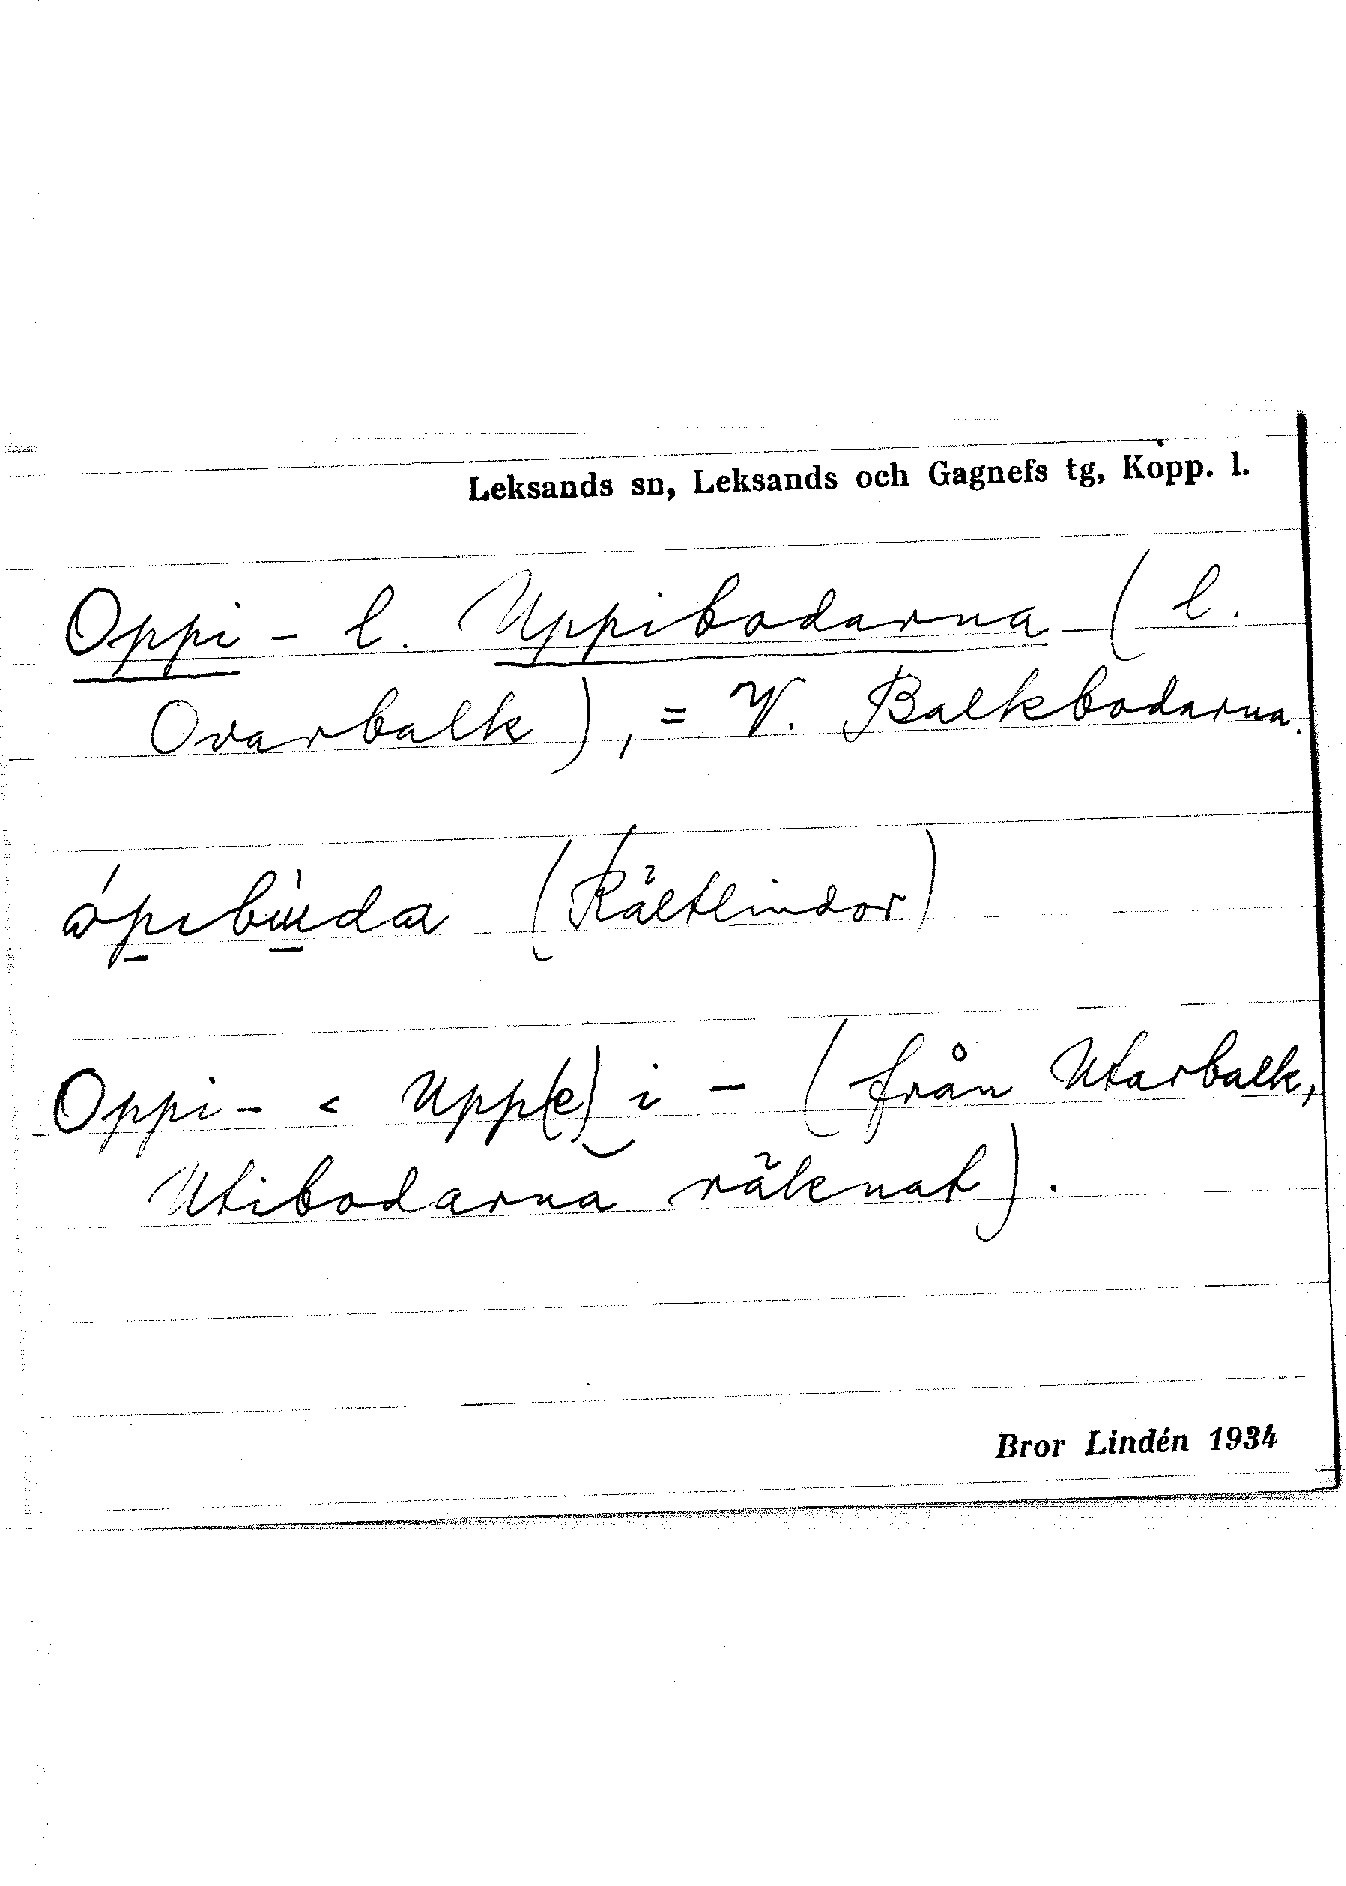 Leksands sn, Leksands och Gagnefs tg, Kopp. l.
Oppi - l. Uppibodarna (l.
Ovarbalk), = V. Balkbodarna.
(Rältlindor)
Oppi- < Upp(e) i - (från Utarbalk,
Utibodarna räknat).
Bror Lindén 1934